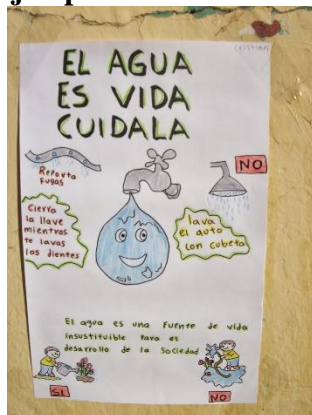 EL AGUA
ES VIDA
CUIDALA
CRISTIAN
Reporta
Fugas
NO
Cierra
la llave
mientras
te lavas
los dientes
lava
el auto
con cubeta
El agua es una Fuente de vida
insustituible Para el
desarrollo de la Sociedad
SI
NO